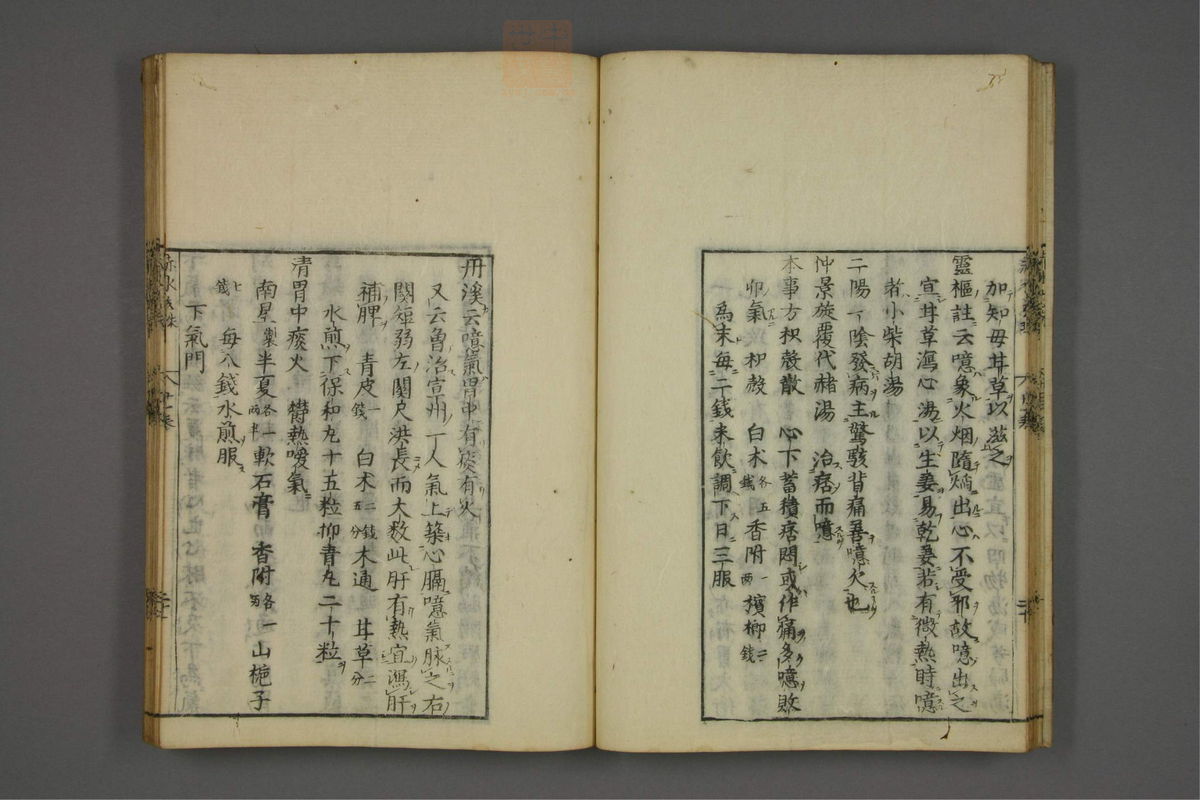 加知母甘草以滋之
靈樞註云噫象火烟隨熖出心不受邪故噫出之
宣甘草瀉心湯以生姜易乾姜若有微熱時噫
者小柴胡湯
二陽一陰發病主驚駭背痛善噫欠也
仲景旋覆代赭湯　治痞而噫
本事方枳殻散　心下蓄積痞悶或作痛多噫敗
卵氣　枳殻　白术各五錢香附一兩擯榔二錢
為末每二錢米飲調下日三服
丹溪云噫氣胃中有痰有火
又云魯治宣州一人氣上築心膈噫氣脉之右
関短弱左関尺洪長而大数此肝有熱宜瀉肝
補脾　青皮一錢　白术二錢五分木通　甘草二分
水煎下保和丸十五粒抑青丸二十粒
清胃中痰火　鬱熱噯氣
南星製半夏各一兩半軟石膏　香附各一兩山梔子
七錢　每八錢水煎服
下氣門